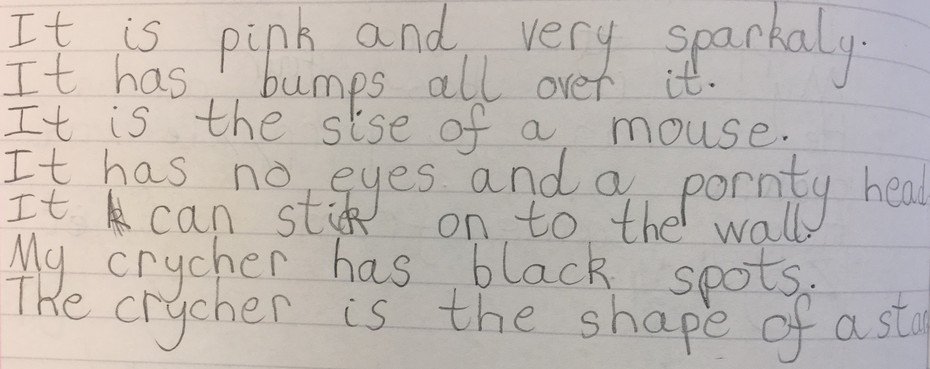 It is pink and very sparkaly.
It has bumps all over it.
It is the sise of a mouse.
It has no eyes and a pornty head
It can stick on to the wall.
My crycher has black spots.
The crycher is the shape of a star